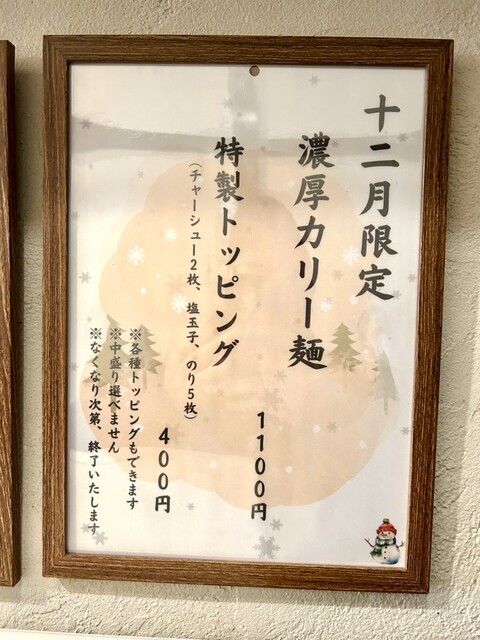 十二月限定
濃厚カリー麺
1100円
特製トッピング
（チャーシュー2枚、塩玉子、のり5枚）
400円
※各種トッピングもできます
※中盛り選べません
※なくなり次第、終了いたします